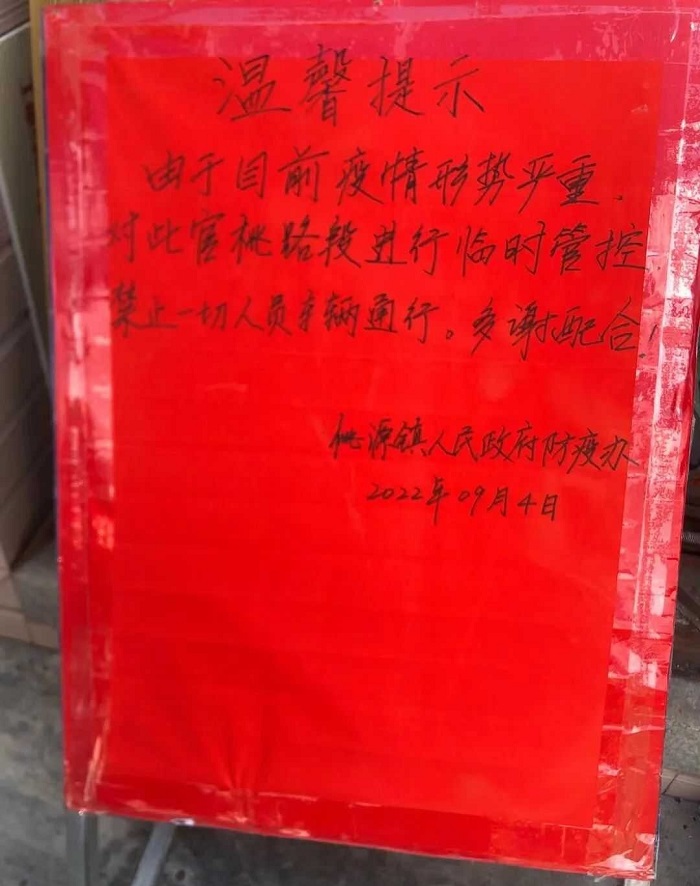 温馨提示
由于目前疫情形势严重，
对此官桃路段进行临时管控
禁止一切人员车辆通行。多谢配合！
桃源镇人民政府防疫办
2022年09月4日